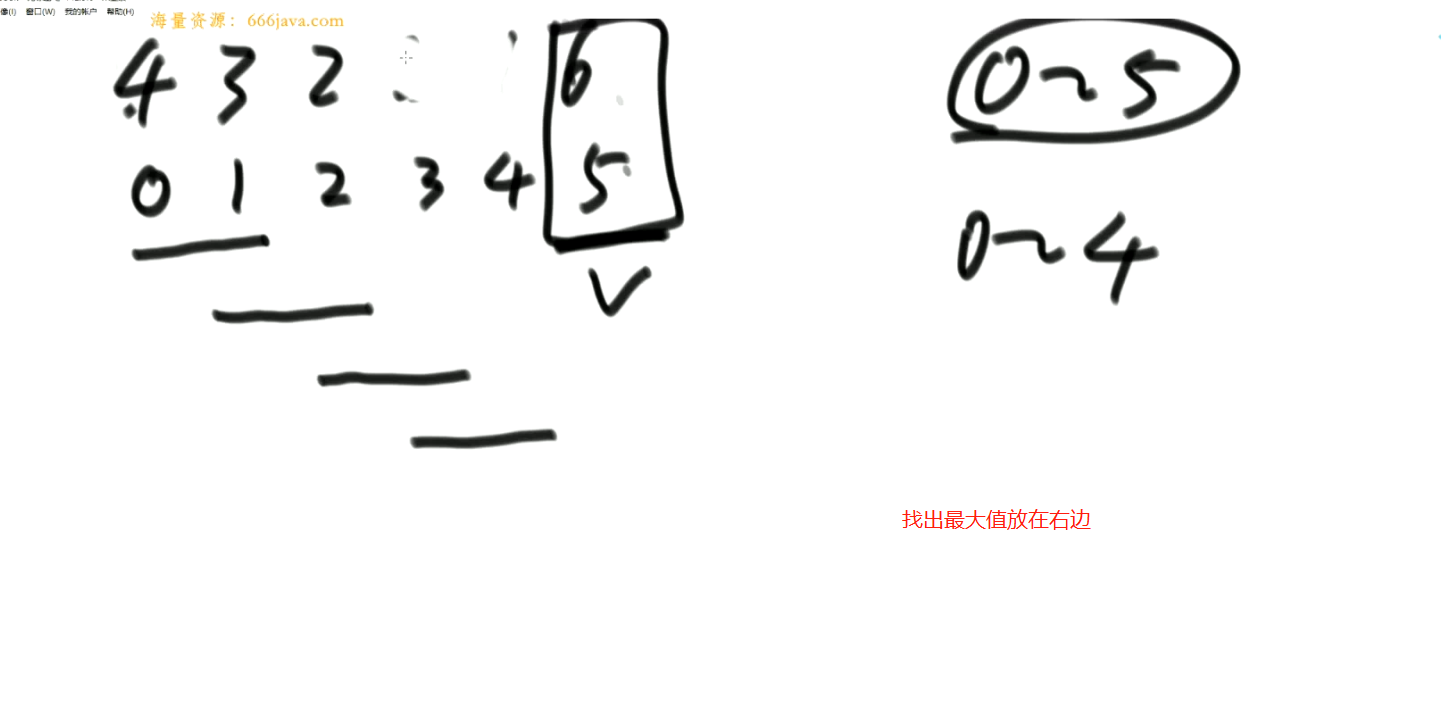 像(I) 窗口(W) 我的帐户 帮助(H)
海量资源：666java.com
4 3 2 6
0 1 2 3 4 5
0~5
0~4
找出最大值放在右边